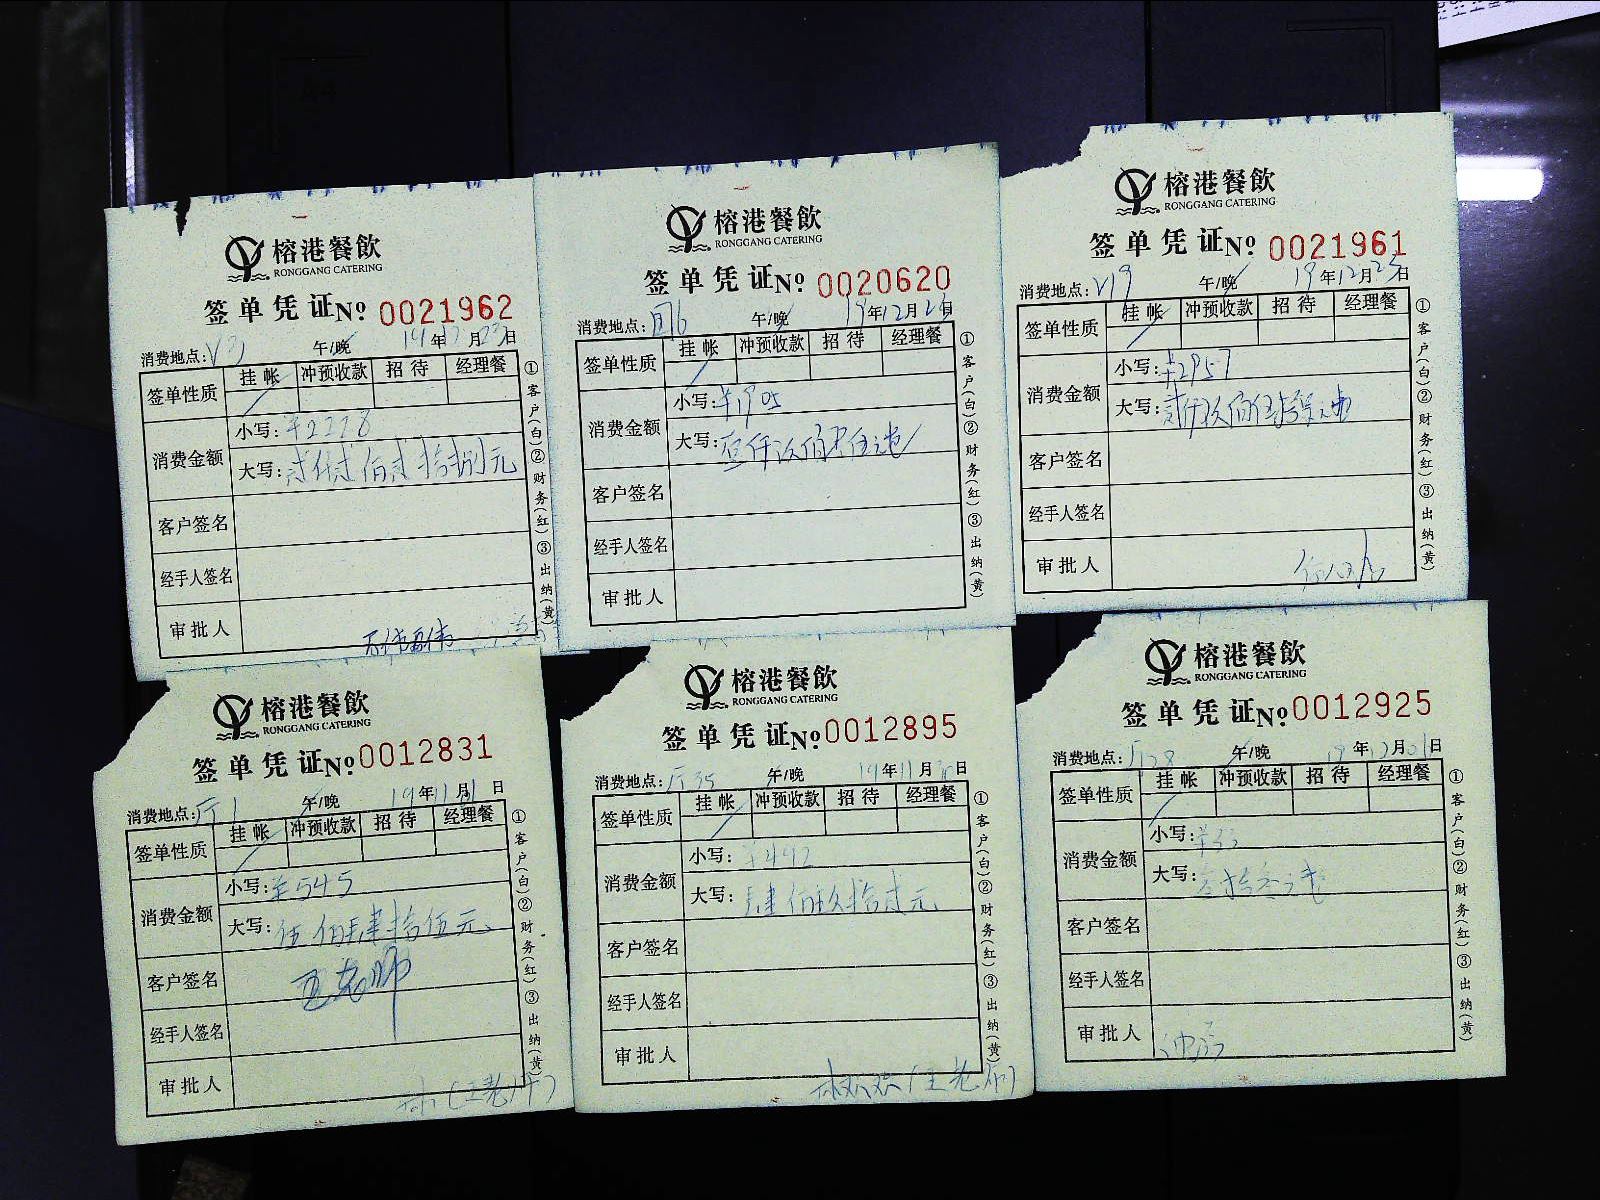 榕港餐飲
RONGGANG CATERING
签单凭证 № 0021962
消费地点: 午/晚 19年12月23日
签单性质 挂帐 冲预收款 招待 经理餐
消费金额
小写: ¥2228
大写: 贰仟贰佰贰拾捌元
客户签名
经手人签名
审批人
①客户(白)②财务(红)③出纳(黄)
榕港餐飲
RONGGANG CATERING
签单凭证 № 0020620
消费地点: 午/晚 19年12月日
签单性质 挂帐 冲预收款 招待 经理餐
消费金额
小写: ¥1905
大写: 壹仟玖佰零伍元
客户签名
经手人签名
审批人
①客户(白)②财务(红)③出纳(黄)
榕港餐飲
RONGGANG CATERING
签单凭证 № 0021961
消费地点: V19 午/晚 19年12月23日
签单性质 挂帐 冲预收款 招待 经理餐
消费金额
小写: ¥2957
大写: 贰仟玖佰伍拾柒元
客户签名
经手人签名
审批人
①客户(白)②财务(红)③出纳(黄)
榕港餐飲
RONGGANG CATERING
签单凭证 № 0012831
消费地点: 厅1 午/晚 19年11月日
签单性质 挂帐 冲预收款 招待 经理餐
消费金额
小写: ¥545
大写: 伍佰肆拾伍元
客户签名 王老师
经手人签名
审批人 (王老师)
①客户(白)②财务(红)③出纳(黄)
榕港餐飲
RONGGANG CATERING
签单凭证 № 0012895
消费地点: 厅35 午/晚 19年11月30日
签单性质 挂帐 冲预收款 招待 经理餐
消费金额
小写: ¥492
大写: 肆佰玖拾贰元
客户签名
经手人签名
审批人 (王老师)
①客户(白)②财务(红)③出纳(黄)
榕港餐飲
RONGGANG CATERING
签单凭证 № 0012925
消费地点: 厅28 午/晚 19年12月01日
签单性质 挂帐 冲预收款 招待 经理餐
消费金额
小写:
大写:
客户签名
经手人签名
审批人
①客户(白)②财务(红)③出纳(黄)